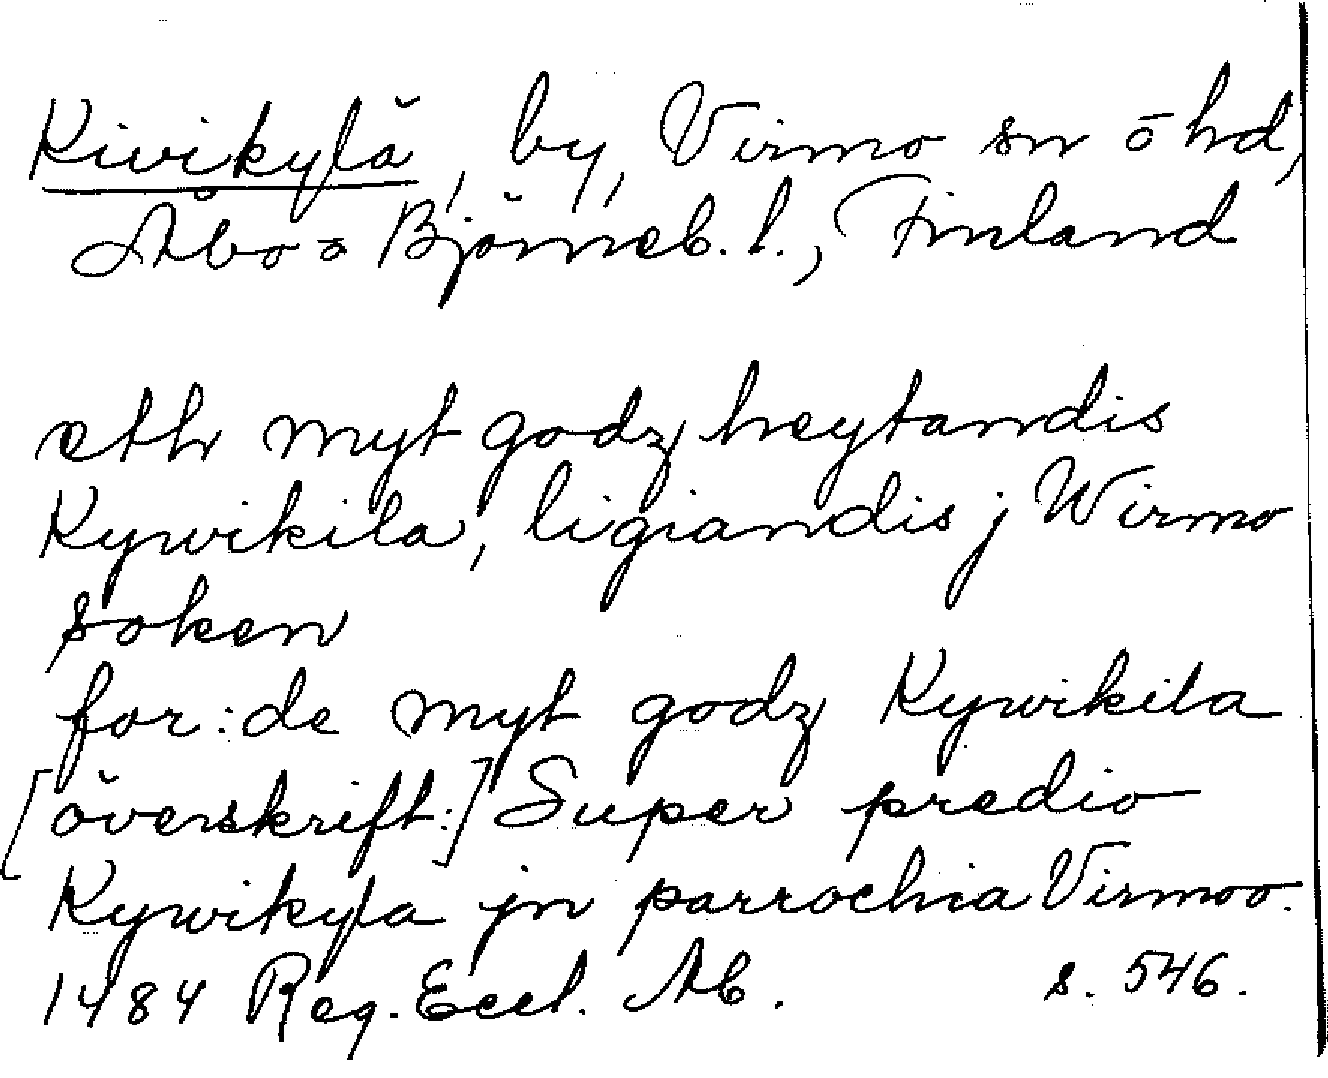 Kivikylä, by, Virmo sn o hd,
Åbo o Björneb. l., Finland
eth myt godz heytandis
Kywikila, ligiandis j Wirmo
soken
for:de myt godz Kywikila
[överskrift:] Super predio
Kywikyla jn parrochia Virmoo.
1484 Reg. Eccl. Ab. s. 546.